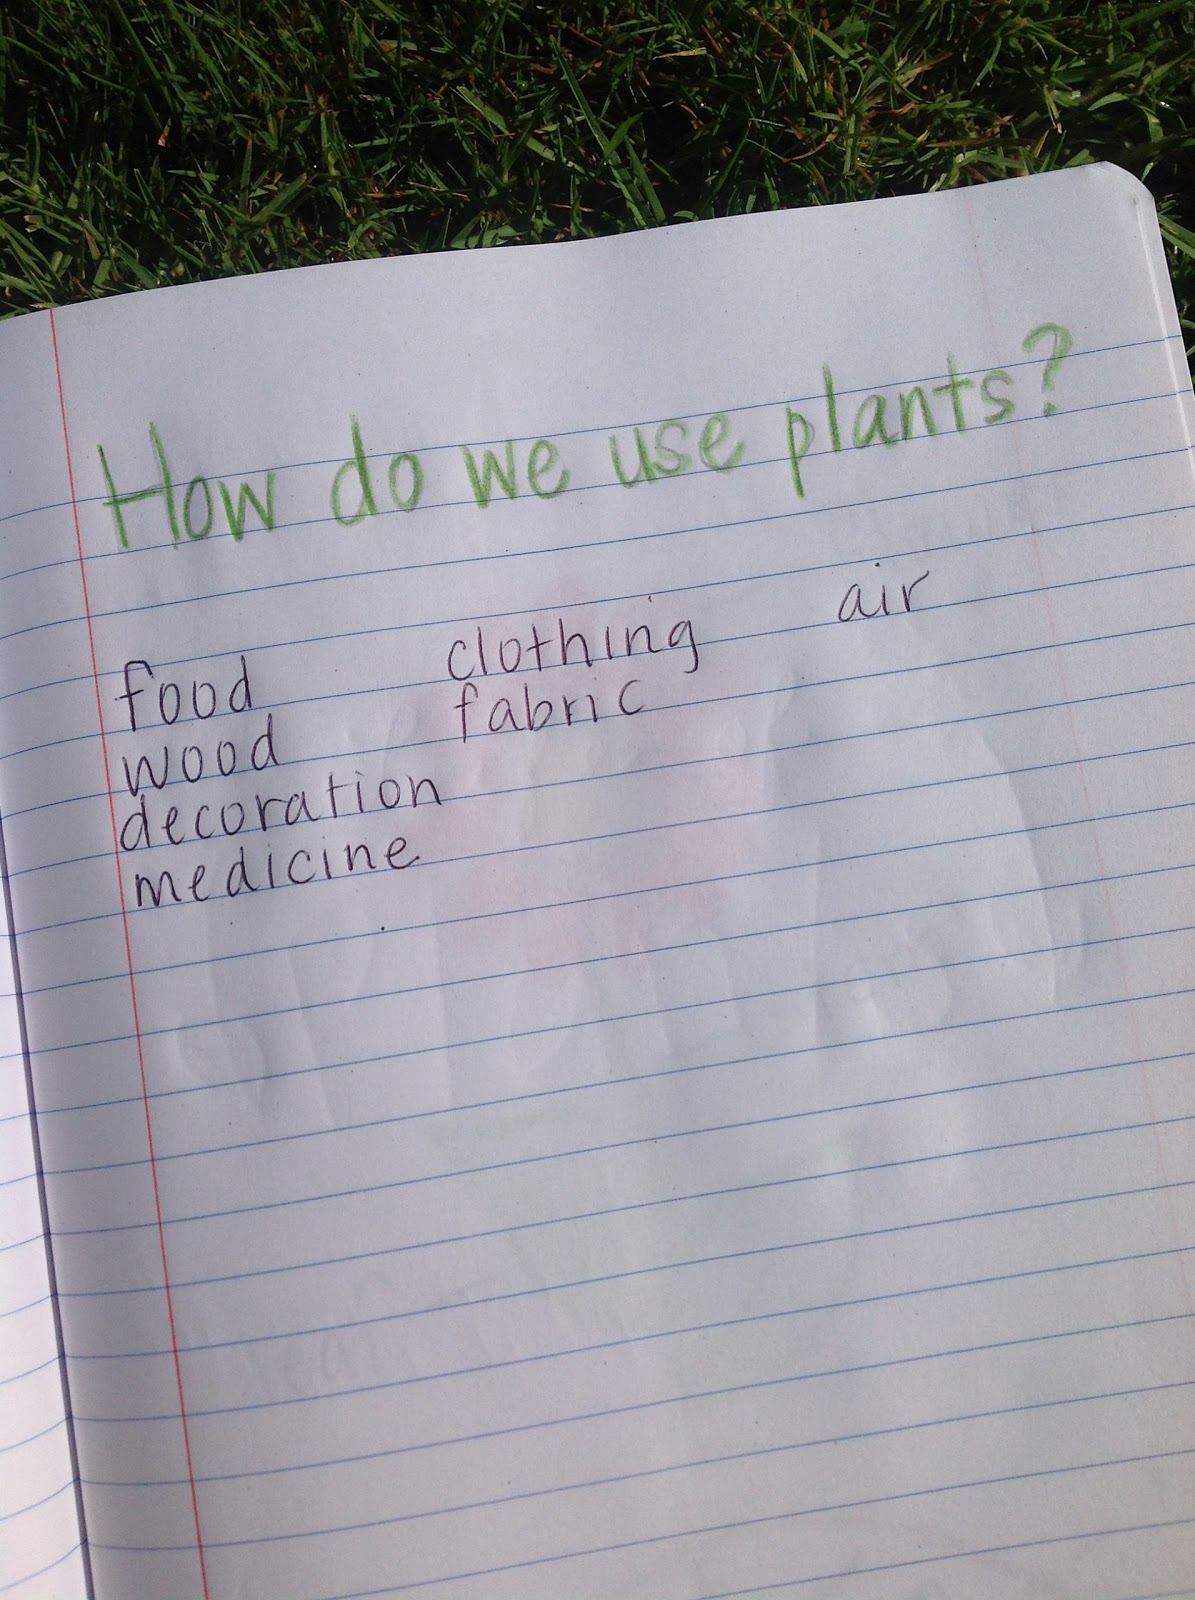 How do we use plants?
food
wood
decoration
medicine
clothing
fabric
air